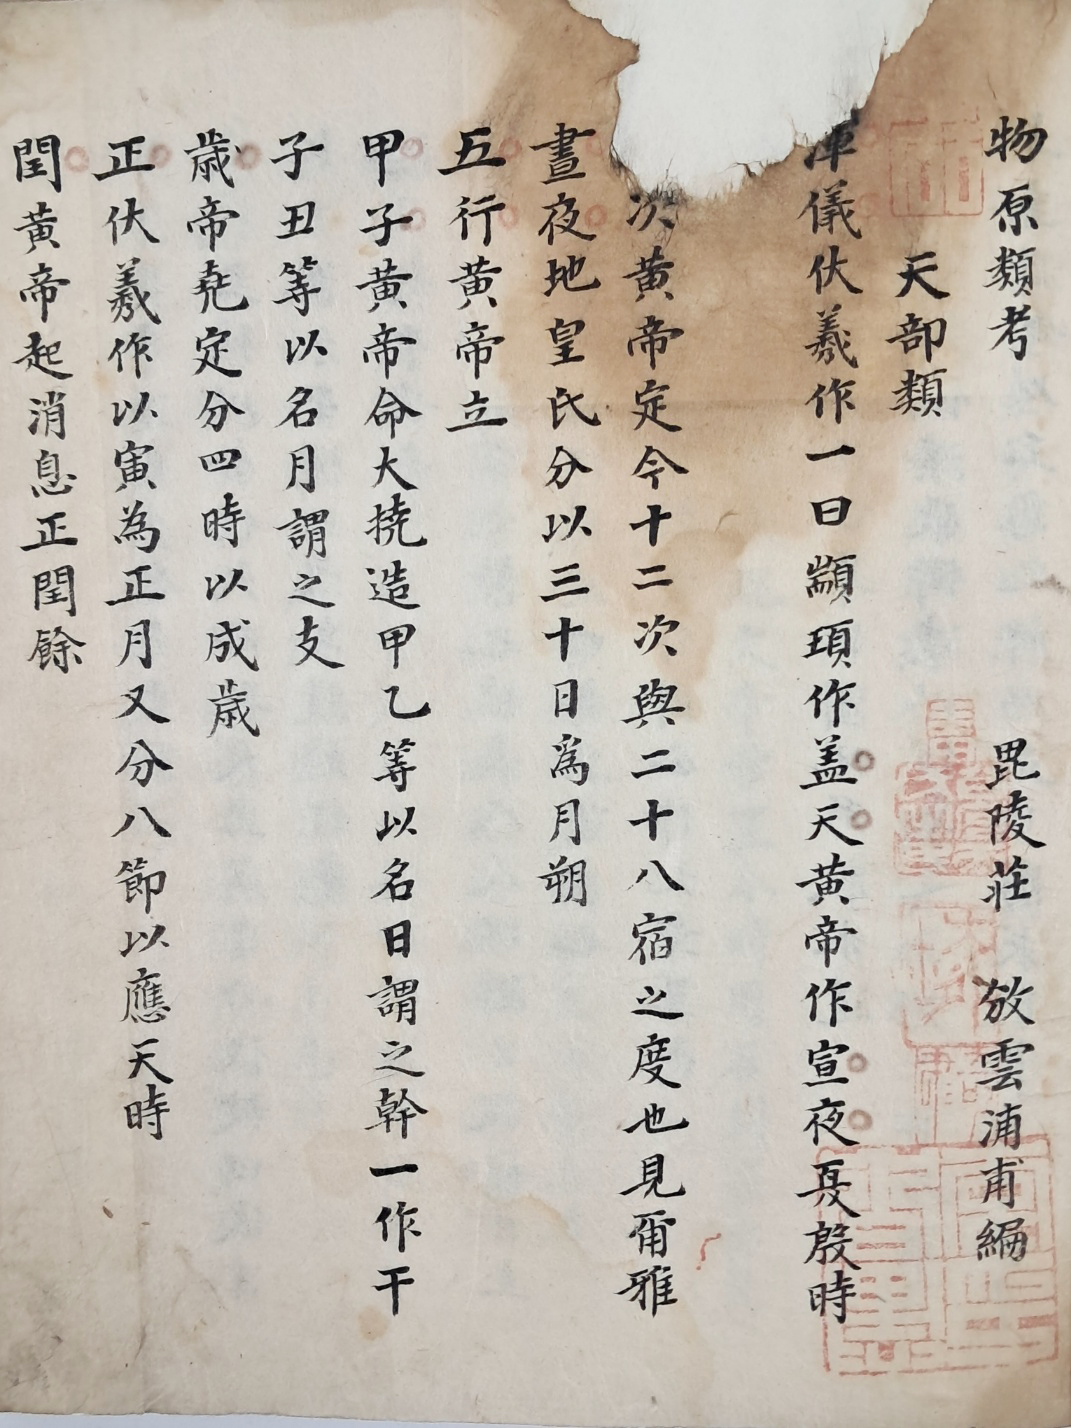 物原類考 毘陵莊 敓雲浦甫編
天部類
渾儀伏羲作一曰顓頊作盖天黄帝作宣夜夏殷時
次黄帝定今十二次與二十八宿之度也見爾雅
晝夜地皇氏分以三十日爲月朔
五行黄帝立
甲子黄帝命大撓造甲乙等以名日謂之幹一作干
子丑等以名月謂之支
歳帝尭定分四時以成歳
正伏羲作以寅為正月又分八節以應天時
閏黄帝起消息正閏餘